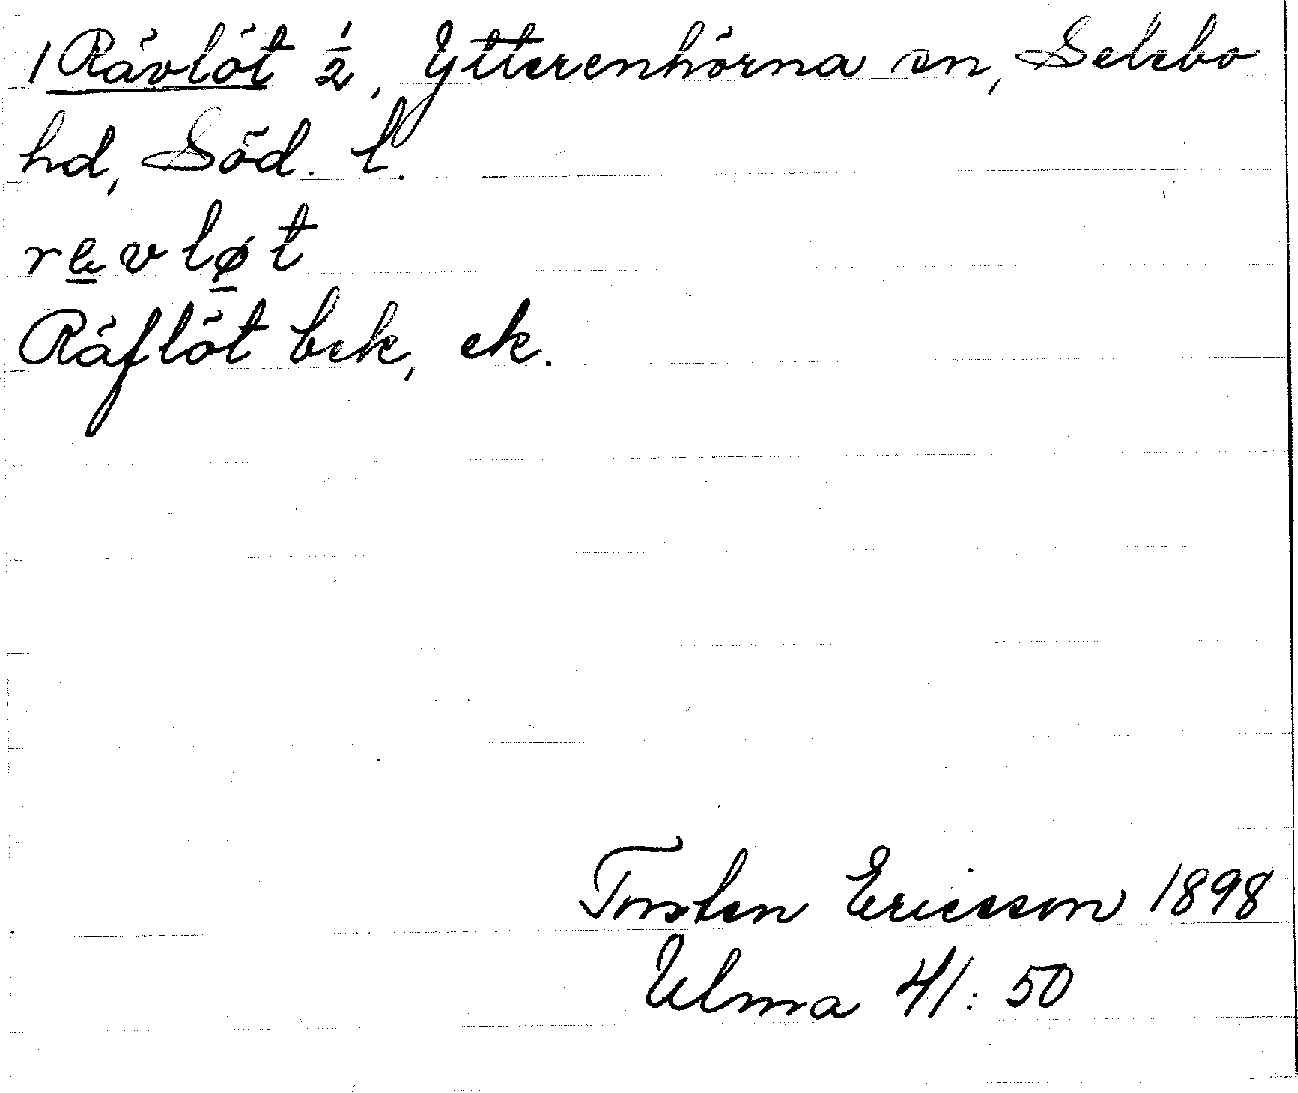 1 Rävlöt ½, Ytterenhörna sn, Selebo
hd, Söd. l.
rævløt
Räflöt bek, ek.
Torsten Ericsson 1898
Ulma 41:50